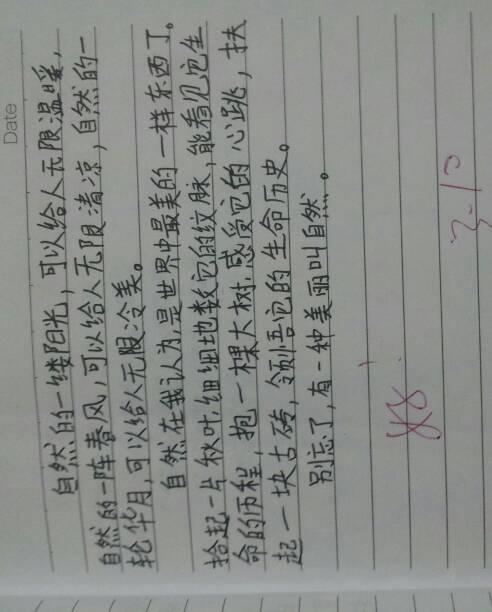 Date
自然的一缕阳光，可以给人无限温暖，
自然的一阵春风，可以给人无限清凉，自然的一
轮华月，可以给人无限冷美。
自然在我认为，是世界中最美的一样东西了。
拾起一片秋叶，细细地数它的纹脉，能看见它生
命的历程，抱一棵大树，感受它的心跳，扶
起一块古砖，领悟它的生命历史。
别忘了，有一种美丽叫自然。
88
3.10